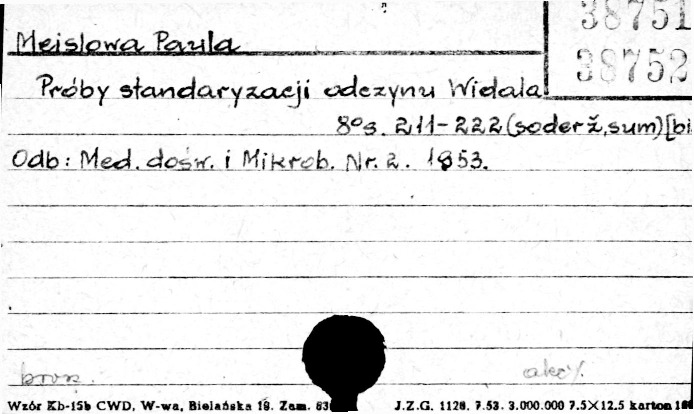 38751
38752
Mejslowa Paula
Próby standaryzacji odczynu Widala
8°s. 211-222 (soderž, sum) [bi
Odb: Med. dośw. i Mikrob. Nr. 2. 1953.
brosz. akc/.
Wzór Kb-15b CWD, W-wa, Bielańska 18. Zam. 63 J.Z.G. 1128. 7.53. 3.000.000 7.5×12.5 karton 1